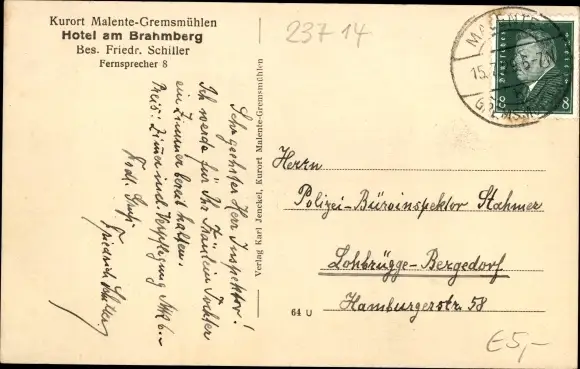 Kurort Malente-Gremsmühlen
Hotel am Brahmberg
Bes. Friedr. Schiller
Fernsprecher 8
23714
Sehr geehrter Herr Inspektor!
Ich werde für Ihr Fräulein Tochter
ein Zimmer bereit halten.
Preis: Zimmer und Verpflegung Mk 6.-
Frdl. Gruß
Friedrich Schiller
Verlag Karl Jenckel, Kurort Malente-Gremsmühlen
64 U
MALENTE
15.7.
8 8
Herrn
Polizei-Büroinspektor Stahmer
Lohbrügge-Bergedorf
Hamburgerstr. 58
€5,-